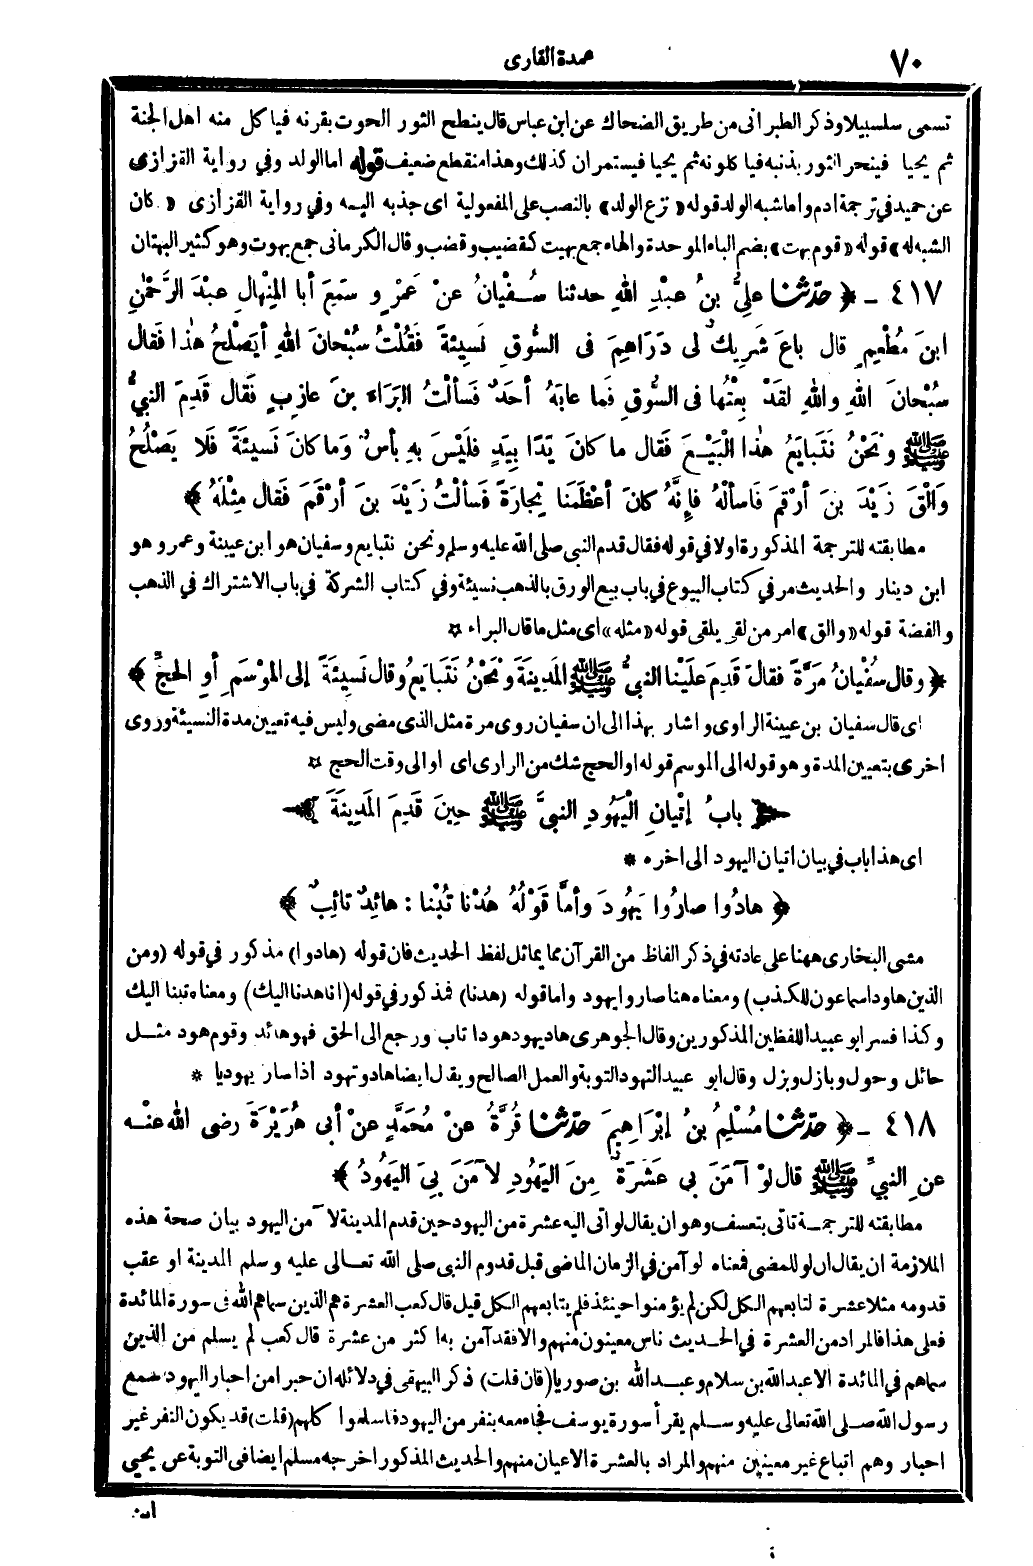 ٧٠
عمدة القارى
تسمى سلسبيلا وذكر الطبرانى من طريق الضحاك عن ابن عباس قال ينطح الثور الحوت بقرنه فيأكل منه اهل الجنة
ثم يحيا فينحر الثور بذنبه فيأكلونه ثم يحيا فيستمران كذلك وهذا منقطع ضعيف قوله اما الولد وفي رواية الفزازى
عن حميد في ترجمة ادم واما شبه الولد قوله «نزع الولد» بالنصب على المفعولية اى جذبه اليه وفي رواية الفزازى «كان
الشبه له» قوله «قوم بهت» بضم الباء الموحدة والهاء جمع بهيت كقضيب وقضب وقال الكرمانى جمع بهوت وهو كثير البهتان
٤١٧ - ﴿ حدثنا عَلِيُّ بنُ عبْدِ اللهِ حدثنا سُفْيانُ عنْ عَمْرٍ و سَمِعَ أبا المِنْهالِ عبْدَ الرَّحْمٰنِ
ابنَ مُطْعِمٍ قال باعَ شَرِيكٌ لِى دَرَاهِمَ فى السُّوقِ نَسِيئَةً فَقُلْتُ سُبْحانَ اللهِ أيَصْلُحُ هٰذا فقال
سُبْحانَ اللهِ واللهِ لقَدْ بِعْتُها فى السُّوقِ فَما عابَهُ أحَدٌ فَسألْتُ البَرَاءَ بنَ عازِبٍ فَقال قَدِمَ النبيُّ
ﷺ ونَحْنُ نَتَبايَعُ هٰذا الْبَيْعَ فَقال ما كانَ يَدًا بِيَدٍ فلَيْسَ بِهِ بأسٌ وَما كانَ نَسِيئَةً فَلا يَصْلُحُ
وَالْقَ زَيْدَ بنَ أرْقَمَ فَاسألْهُ فإنَّهُ كانَ أعْظَمَنا تِجارَةً فَسألْتُ زَيْدَ بنَ أرْقَمَ فَقال مِثْلَهُ ﴾
مطابقته للترجمة المذكورة اولا في قوله فقال قدم النبى صلى الله عليه وسلم ونحن نتبايع وسفيان هو ابن عيينة وعمرو هو
ابن دينار والحديث مر في كتاب البيوع في باب بيع الورق بالذهب نسيئة وفي كتاب الشركة في باب الاشتراك في الذهب
والفضة قوله «والق» امر من لقى يلقى قوله «مثله» اى مثل ما قال البراء ¤
﴿ وقال سُفْيانُ مَرَّةً فقال قَدِمَ عَلَيْنا النبيُّ ﷺ المَدِينَةَ ونَحْنُ نَتَبايَعُ وقال نَسِيئَةً إلى المَوْسَمِ أوِ الحجِّ ﴾
اى قال سفيان بن عيينة الراوى واشار بهذا الى ان سفيان روى مرة مثل الذى مضى وليس فيه تعيين مدة النسيئة وروى
اخرى بتعيين المدة وهو قوله الى الموسم قوله او الحج شك من الراوى اى او الى وقت الحج ¤
﴿ بابُ إتْيانِ الْيَهُودِ النبيَّ ﷺ حِينَ قَدِمَ المَدِينَةَ ﴾
اى هذا باب في بيان اتيان اليهود الى اخره *
﴿ هادُوا صارُوا يَهُودَ وأمَّا قَوْلُهُ هُدْنا تُبْنا : هائِدٌ تائِبٌ ﴾
مشى البخارى ههنا على عادته في ذكر الفاظ من القرآن مما يماثل لفظ الحديث فان قوله (هادوا) مذكور في قوله (ومن
الذين هادوا سماعون للكذب) ومعناه هنا صاروا يهود واما قوله (هدنا) فمذكور في قوله (انا هدنا اليك) ومعناه تبنا اليك
وكذا فسر ابو عبيد اللفظين المذكورين وقال الجوهرى هاد يهود هودا تاب ورجع الى الحق فهو هائد وقوم هود مثل
حائل وحول وبازل وبزل وقال ابو عبيد التهود التوبة والعمل الصالح ويقال ايضا هاد وتهود اذا صار يهوديا *
٤١٨ - ﴿ حدثنا مُسْلِمُ بنُ إبْرَاهِيمَ حدثنا قُرَّةُ عنْ مُحَمَّدٍ عنْ أبى هُرَيْرَةَ رضى اللهُ عنْه
عنِ النبيِّ ﷺ قال لوْ آمَنَ بِى عَشَرَةٌ مِنَ اليَهُودِ لآمَنَ بِىَ اليَهُودُ ﴾
مطابقته للترجمة تاتى بتعسف وهو ان يقال لو اتى اليه عشرة من اليهود حين قدم المدينة لآمن اليهود بيان صحة هذه
الملازمة ان يقال ان لو للمضى فمعناه لو آمن في الزمان الماضى قبل قدوم النبى صلى الله تعالى عليه وسلم المدينة او عقب
قدومه مثلا عشرة لتابعهم الكل لكن لم يؤمنوا حينئذ فلم يتابعهم الكل قيل قال كعب العشرة هم الذين سماهم الله فى سورة المائدة
فعلى هذا فالمراد من العشرة في الحديث ناس معينون منهم والا فقد آمن به اكثر من عشرة قال كعب لم يسلم من الذين
سماهم في المائدة الا عبد الله بن سلام وعبد الله بن صوريا (فان قلت) ذكر البيهقى في دلائله ان حبرا من احبار اليهود سمع
رسول الله صلى الله تعالى عليه وسلم يقرأ سورة يوسف فجاء معه بنفر من اليهود فاسلموا كلهم (قلت) قد يكون النفر غير
احبار وهم اتباع غير معينين منهم والمراد بالعشرة الاعيان منهم والحديث المذكور اخرجه مسلم ايضا فى التوبة عن يحيى
ابن